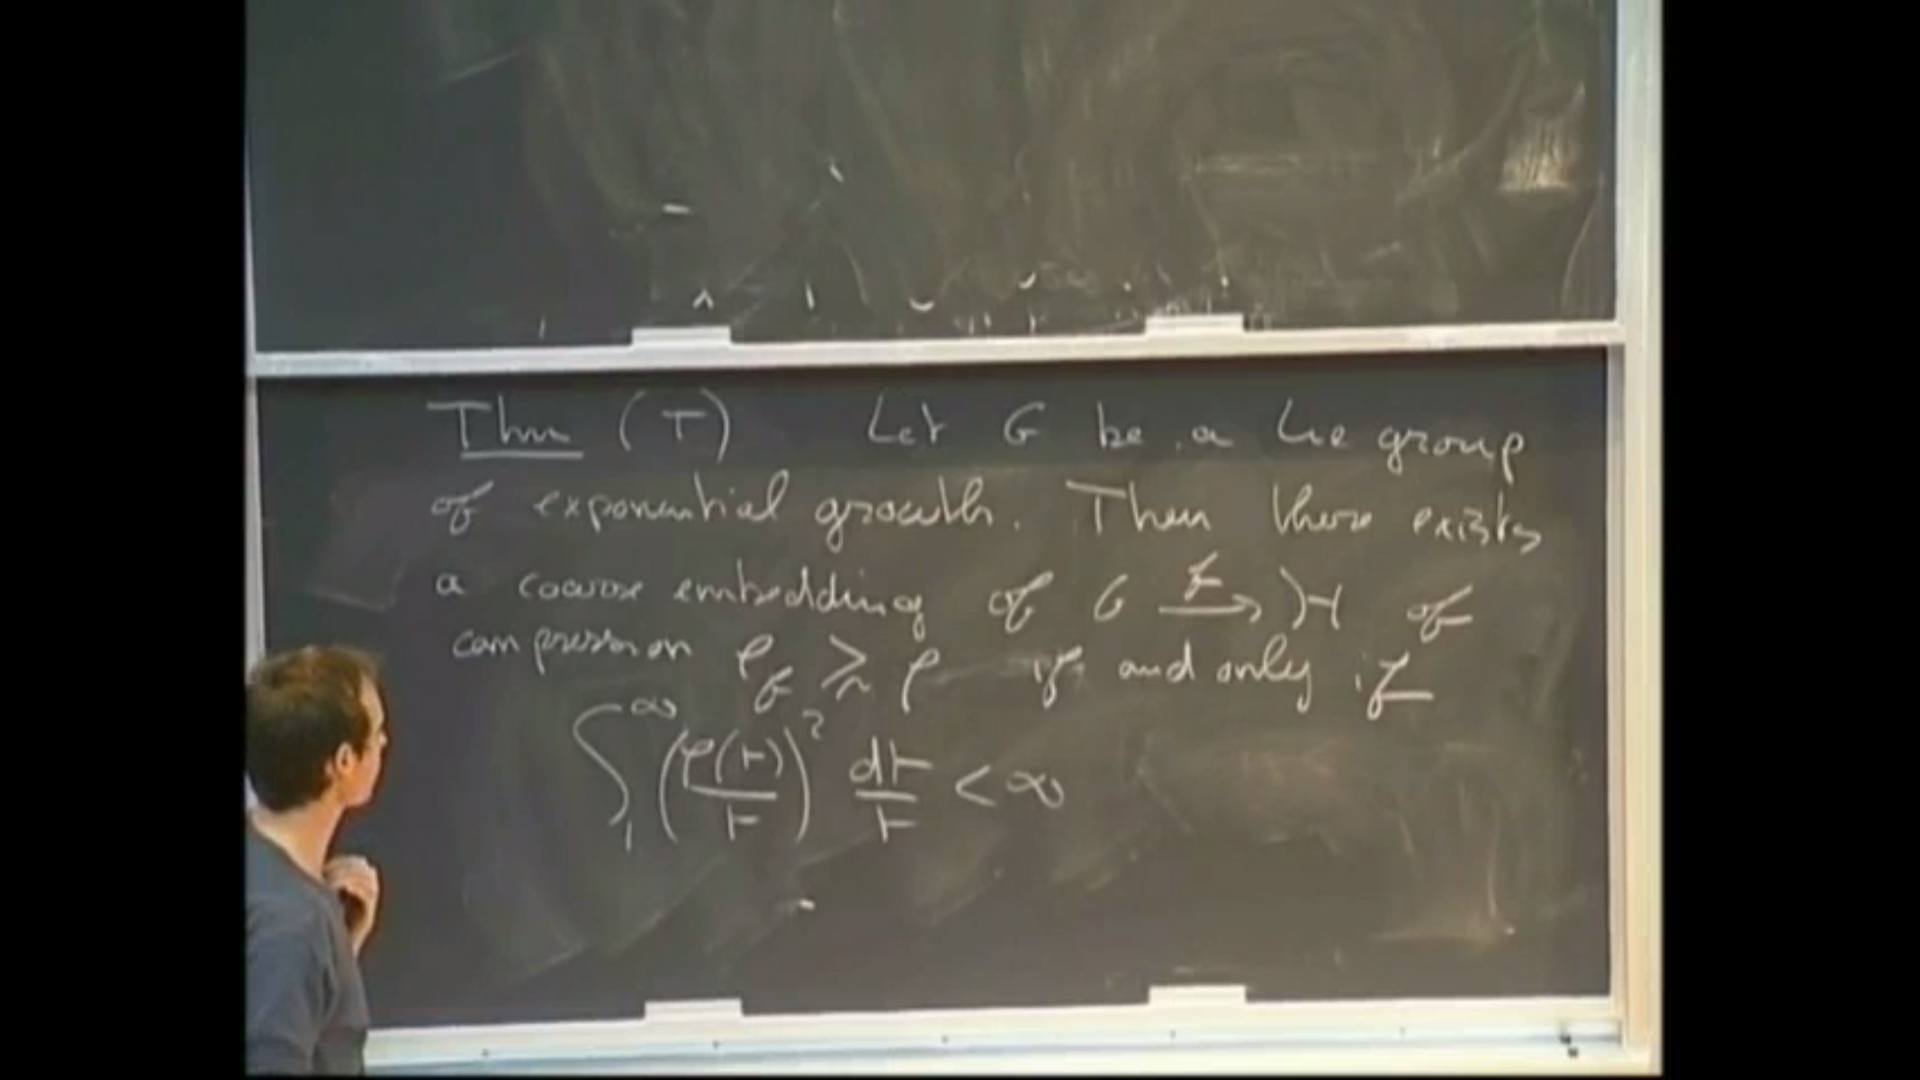 Thm (T) Let G be a Lie group
of exponential growth. Then there exists
a coarse embedding of G \xrightarrow{f} H of
compression ρ_f ≳ ρ if and only if
∫_1^∞ (ρ(t)/t)^2 dt/t < ∞